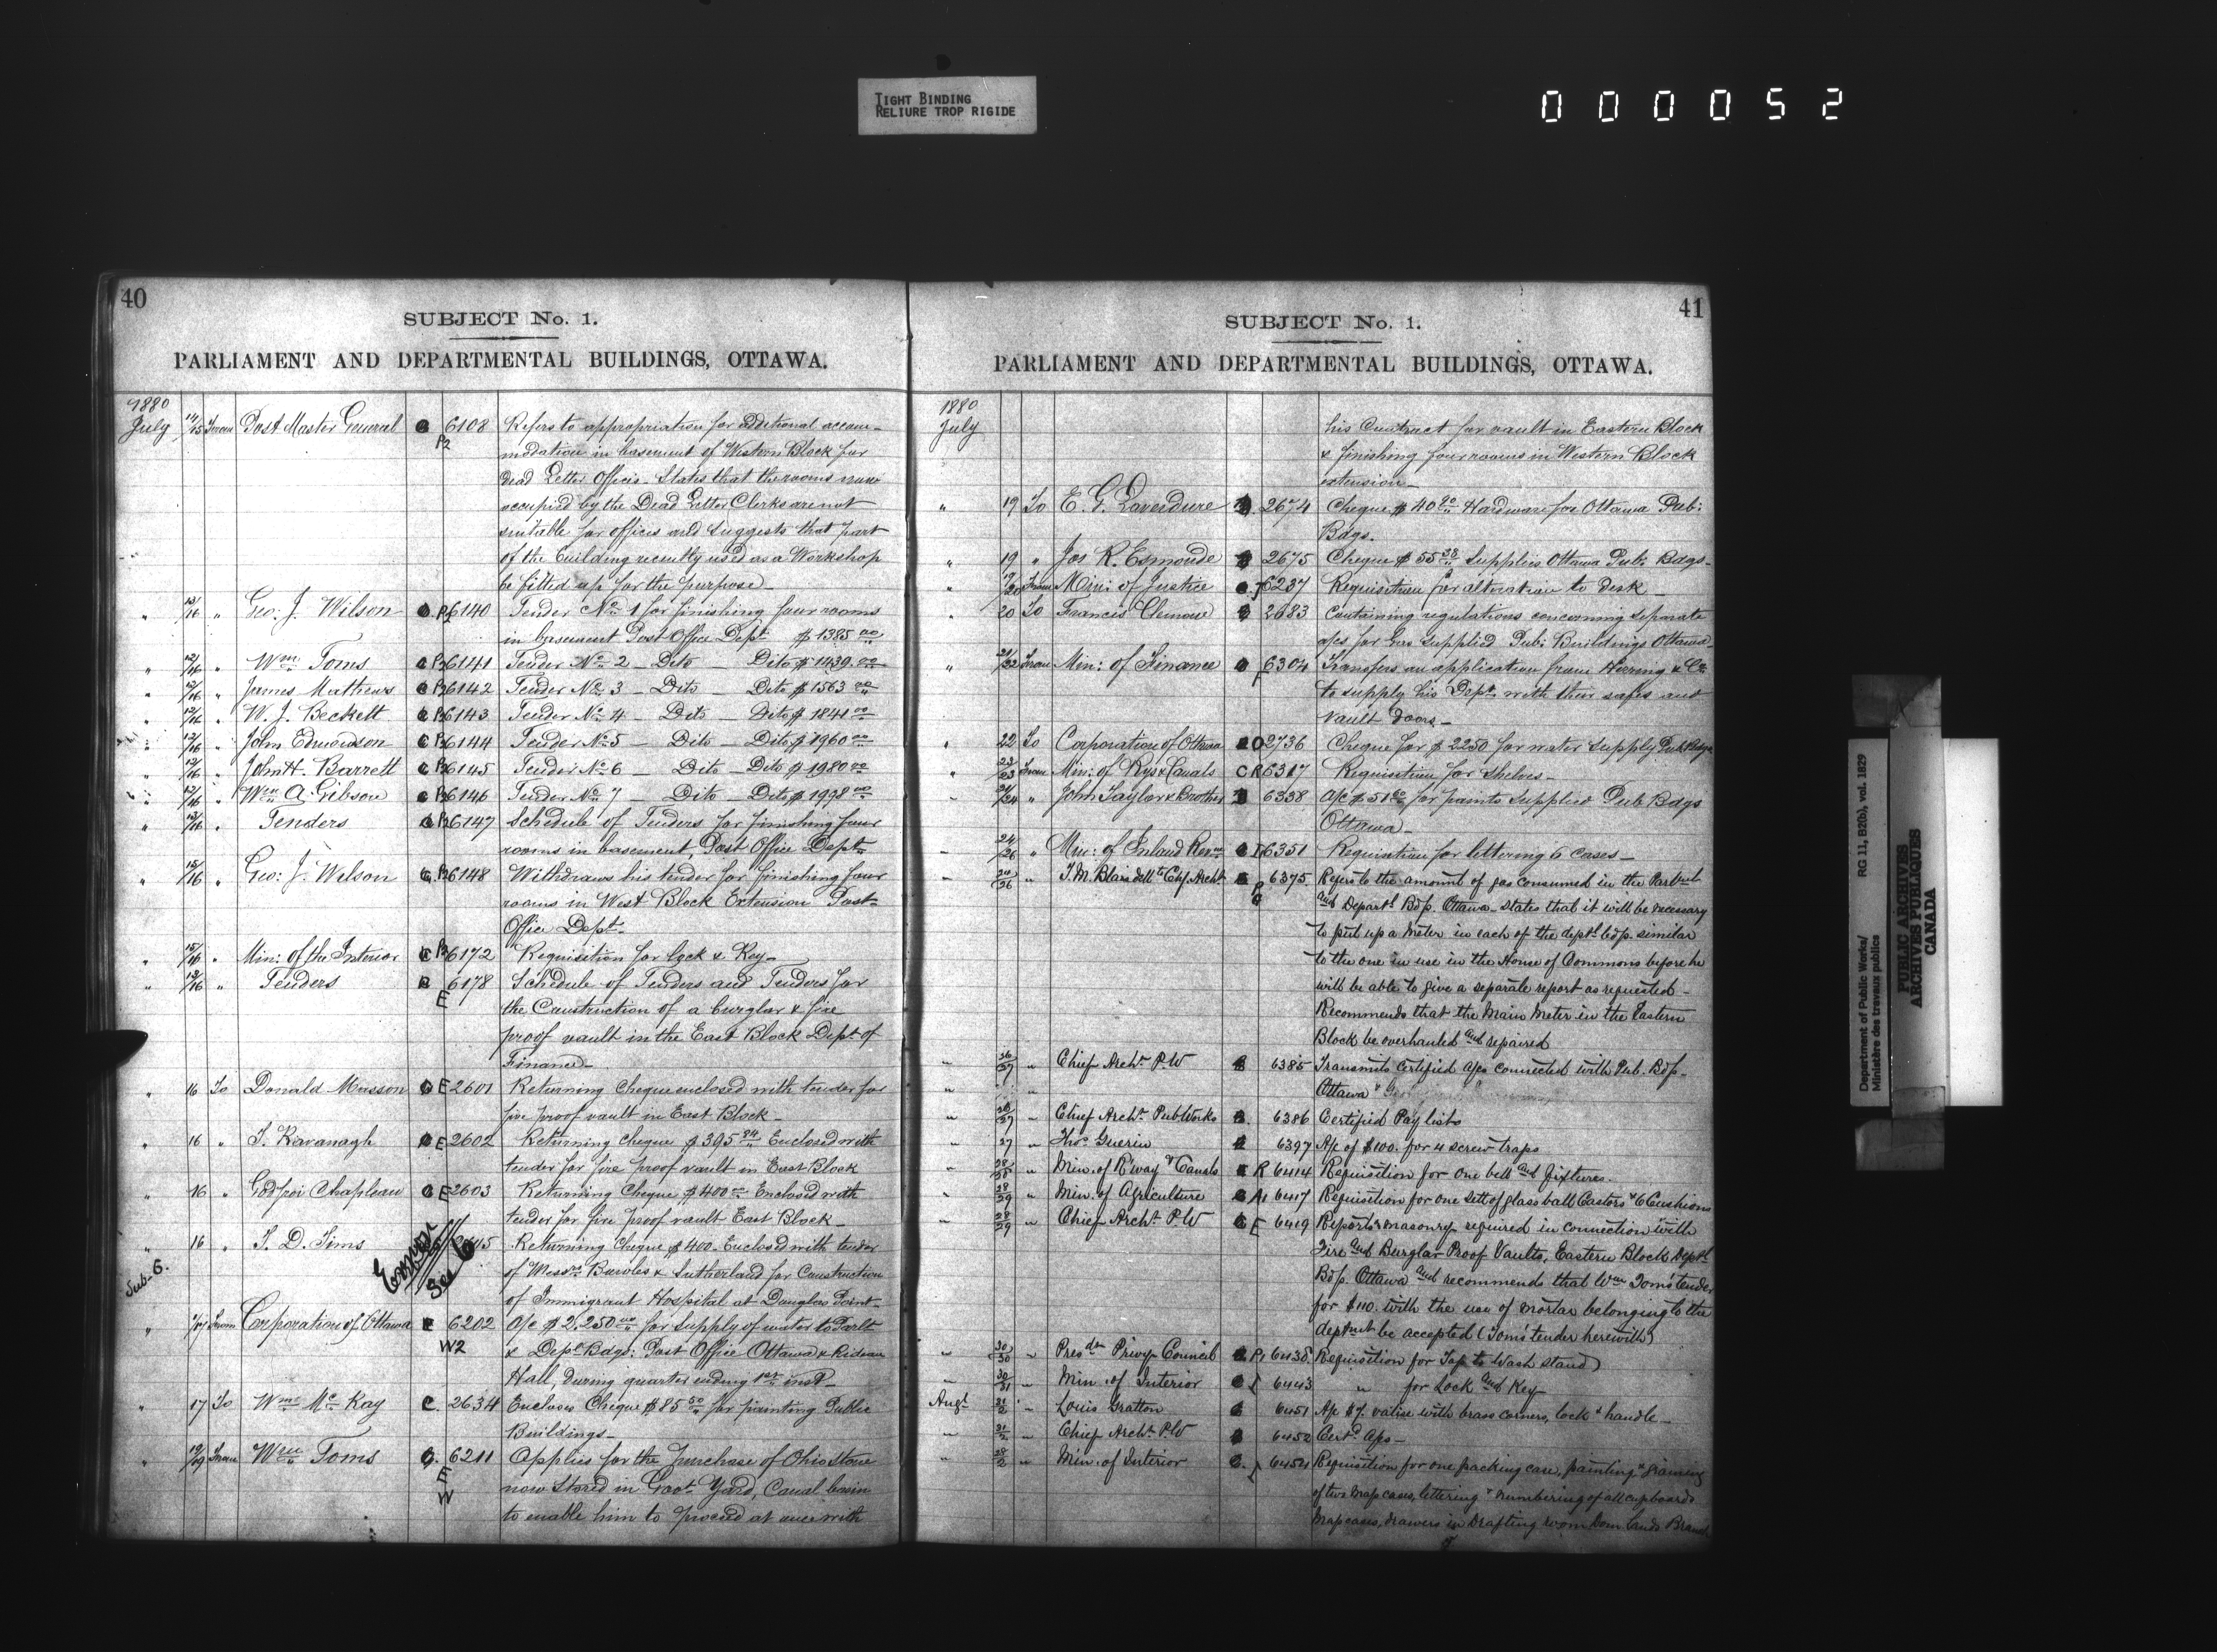 TIGHT BINDING
RELIURE TROP RIGIDE
000052
40
SUBJECT No. 1.
PARLIAMENT AND DEPARTMENTAL BUILDINGS, OTTAWA.
1880
July 14/15 From Post Master General 6108 Refers to appropriation for additional accom-
P2 modation in basement of Western Block for
Dead Letter Offices - States that the rooms now
occupied by the Dead Letter Clerks are not
suitable for offices and suggests that part
of the building recently used as a Workshop
be fitted up for the purpose -
" 13/16 " Geo. J. Wilson P2 6140 Tender No. 1 for finishing four rooms
in basement Post Office Dept. $1385.00
" 12/16 " Wm. Toms 6141 Tender No. 2 - Dito - Dito $1439.00
" 12/16 " James Mathews 6142 Tender No. 3 - Dito - Dito $1563.00
" 12/16 " W. J. Beckett 6143 Tender No. 4 - Dito - Dito $1841.00
" 12/16 " John Edmondson 6144 Tender No. 5 - Dito - Dito $1960.00
" 12/16 " John H. Barrett 6145 Tender No. 6 - Dito - Dito $1980.00
" 12/16 " Wm. A. Gibson 6146 Tender No. 7 - Dito - Dito $1998.00
" 13/16 " Tenders 6147 Schedule of Tenders for finishing four
rooms in basement, Post Office Dept.
" 15/16 " Geo: J. Wilson 6148 Withdraws his tender for finishing four
rooms in West Block Extension Post-
Office Dept.
" 15/16 " Min: of the Interior 6172 Requisition for lock & Key -
" 12/16 " Tenders 6178 Schedule of Tenders and Tenders for
E the Construction of a burglar & fire
proof vault in the East Block Dept. of
Finance -
" 16 To Donald Masson E 2601 Returning Cheque enclosed with tender for
fire proof vault in East Block -
" 16 " T. Kavanagh E 2602 Returning cheque $395.84 Enclosed with
tender for fire proof vault in East Block
" 16 " Godfroi Chapleau E 2603 Returning Cheque $400.00 Enclosed with
tender for fire proof vault East Block -
" 16 " T. D. Tims Error See 6 Returning Cheque $400. Enclosed with tender
Sub-6. of Messrs. Bowles & Sutherland for Construction
of Immigrant Hospital at Douglas Point -
" From Corporation of Ottawa 6202 A/c $2,250.00 for supply of water to Parlt
W2 & Deptl Bdgs: Post Office Ottawa & Rideau
Hall, during quarter ending 1st inst -
" 17 To Wm. McKay C. 2634 Encloses Cheque $85.50 for painting Public
Buildings -
" 19/19 From Wm. Toms 6211 Applies for the purchase of Ohio Stone
E now Stored in Govt. Yard, Canal basin
W to enable him to proceed at once with
41
SUBJECT No. 1.
PARLIAMENT AND DEPARTMENTAL BUILDINGS, OTTAWA.
1880
July his Contract for vault in Eastern Block
& finishing four rooms in Western Block
extension -
" 19 To E. G. Laverdure 2674 Cheque $40 Hardware for Ottawa Pub:
Bdgs.
" 19 " Jos R. Esmonde 2675 Cheque $55.38 Supplies Ottawa Pub. Bdgs -
" From Min: of Justice J 6237 Requisition for alteration to desk -
" 20 To Francis Clemow 2683 Containing regulations concerning separate
a/cs for Gas supplied Pub: Buildings Ottawa -
" 21/22 From Min: of Finance F 6304 Transfers an application from Herring & Co.
to supply his Dept. with their safes and
vault doors -
" 22 To Corporation of Ottawa O 2736 Cheque for $2250 for water supply Pub. Bdgs
" 23/23 From Min: of Rys & Canals C R 6317 Requisition for Shelves -
" 24 " John Taylor & Brother 6338 A/c $51 for paints supplied Pub Bdgs
Ottawa -
" 24/26 " Min: of Inland Revnu 6351 Requisition for lettering 6 cases -
" 26 " 6375 Refers to the amount of gas consumed in the Parlmt
and Departl. Bdgs. Ottawa - states that it will be necessary
to put up a meter in each of the deptl. bdgs. similar
to the one in use in the House of Commons before he
will be able to give a separate report as requested -
Recommends that the Main Meter in the Eastern
Block be overhauled and repaired
" 26/27 " Chief Archt. P.W 6385 Transmits Certified a/cs connected with Pub. Bdgs -
Ottawa
" 26/27 " Chief Archt. Pub Works 6386 Certified Pay lists
" 27 " Thos. Guerin 6397 A/c of $100. for 4 screw traps
" " Min. of R'way & Canals R 6414 Requisition for one bell and fixtures.
" 28/29 " Min. of Agriculture A1 6417 Requisition for one sett of glass ball Castors & 6 Cushions
" 28/29 " Chief Archt. P.W E 6419 Reports masonry required in connection with
Fire and Burglar Proof Vaults, Eastern Block Deptl
Bdgs. Ottawa and recommends that Wm Toms' tender
for $110. with the use of mortar belonging to the
deptmt be accepted (Toms' tender herewith)
" 30/30 " Presdt. Privy Council P1 6438 Requisition for Tap to Wash stand
" 30/31 " Min. of Interior I 6443 " for Lock and Key
Augt 31/2 " Louis Gratton 6451 A/c $7. valise with brass corners, lock & handle -
" 31/2 " Chief Archt. P.W 6452 Certd. A/cs -
" " Min. of Interior I 6454 Requisition for one packing case, painting & graining
of two map cases, lettering & numbering of all cupboards
Map cases, drawers in Drafting room Dom Lands Branch
Department of Public Works/
Ministère des travaux publics
RG 11, B2(b), vol. 1829
PUBLIC ARCHIVES
ARCHIVES PUBLIQUES
CANADA